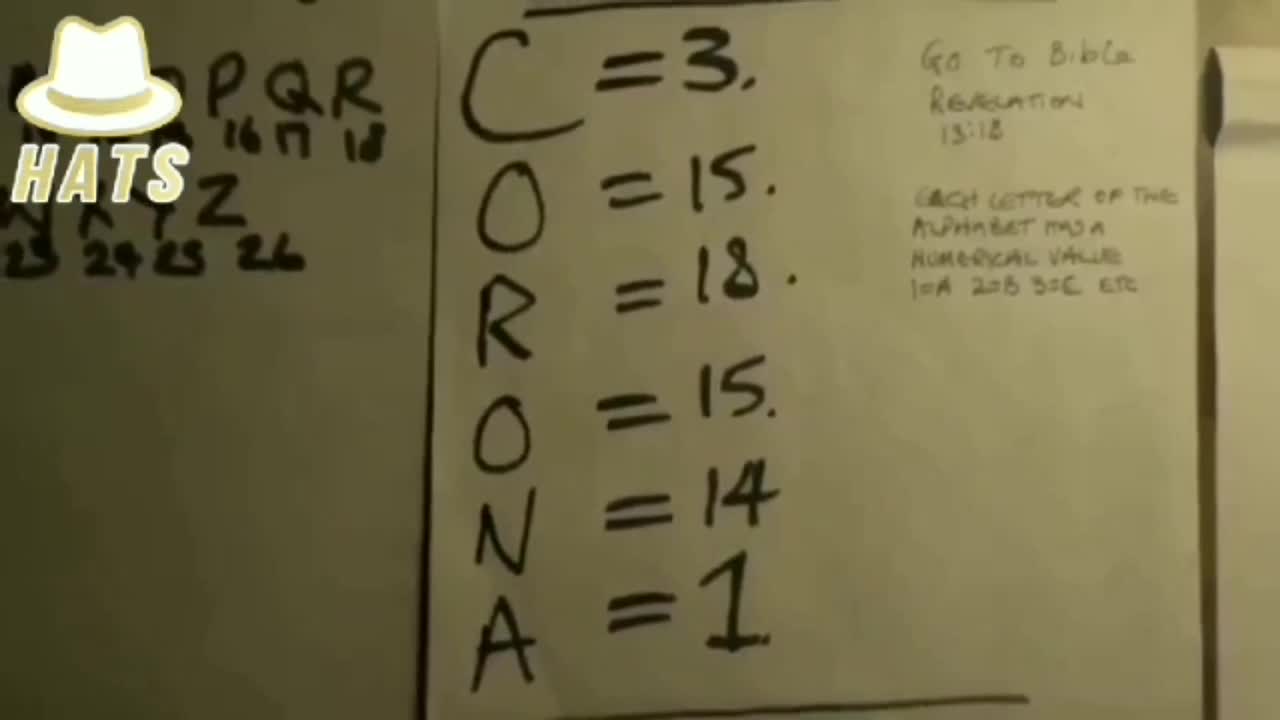 HATS
P Q R
16 17 18
Y Z
23 24 25 26
C = 3.
O = 15.
R = 18.
O = 15.
N = 14
A = 1.
GO TO BIBLE
REVELATION
13:18
EACH LETTER OF THE
ALPHABET HAS A
NUMERICAL VALUE
1=A 2=B 3=C ETC